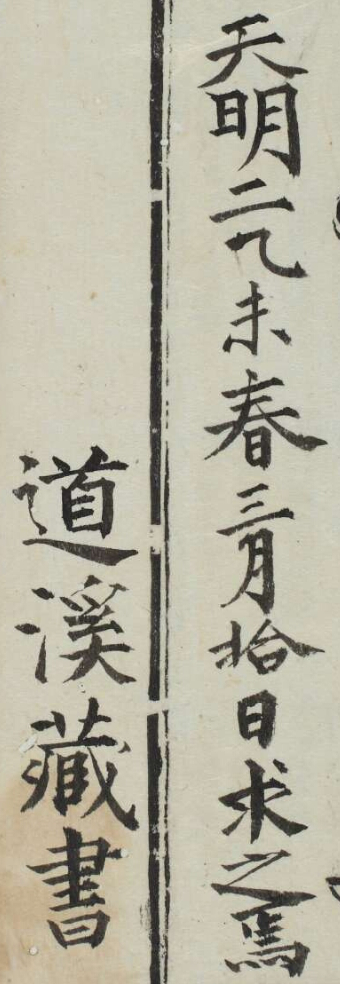 天明二乙未春三月拾日求之焉
道溪藏書